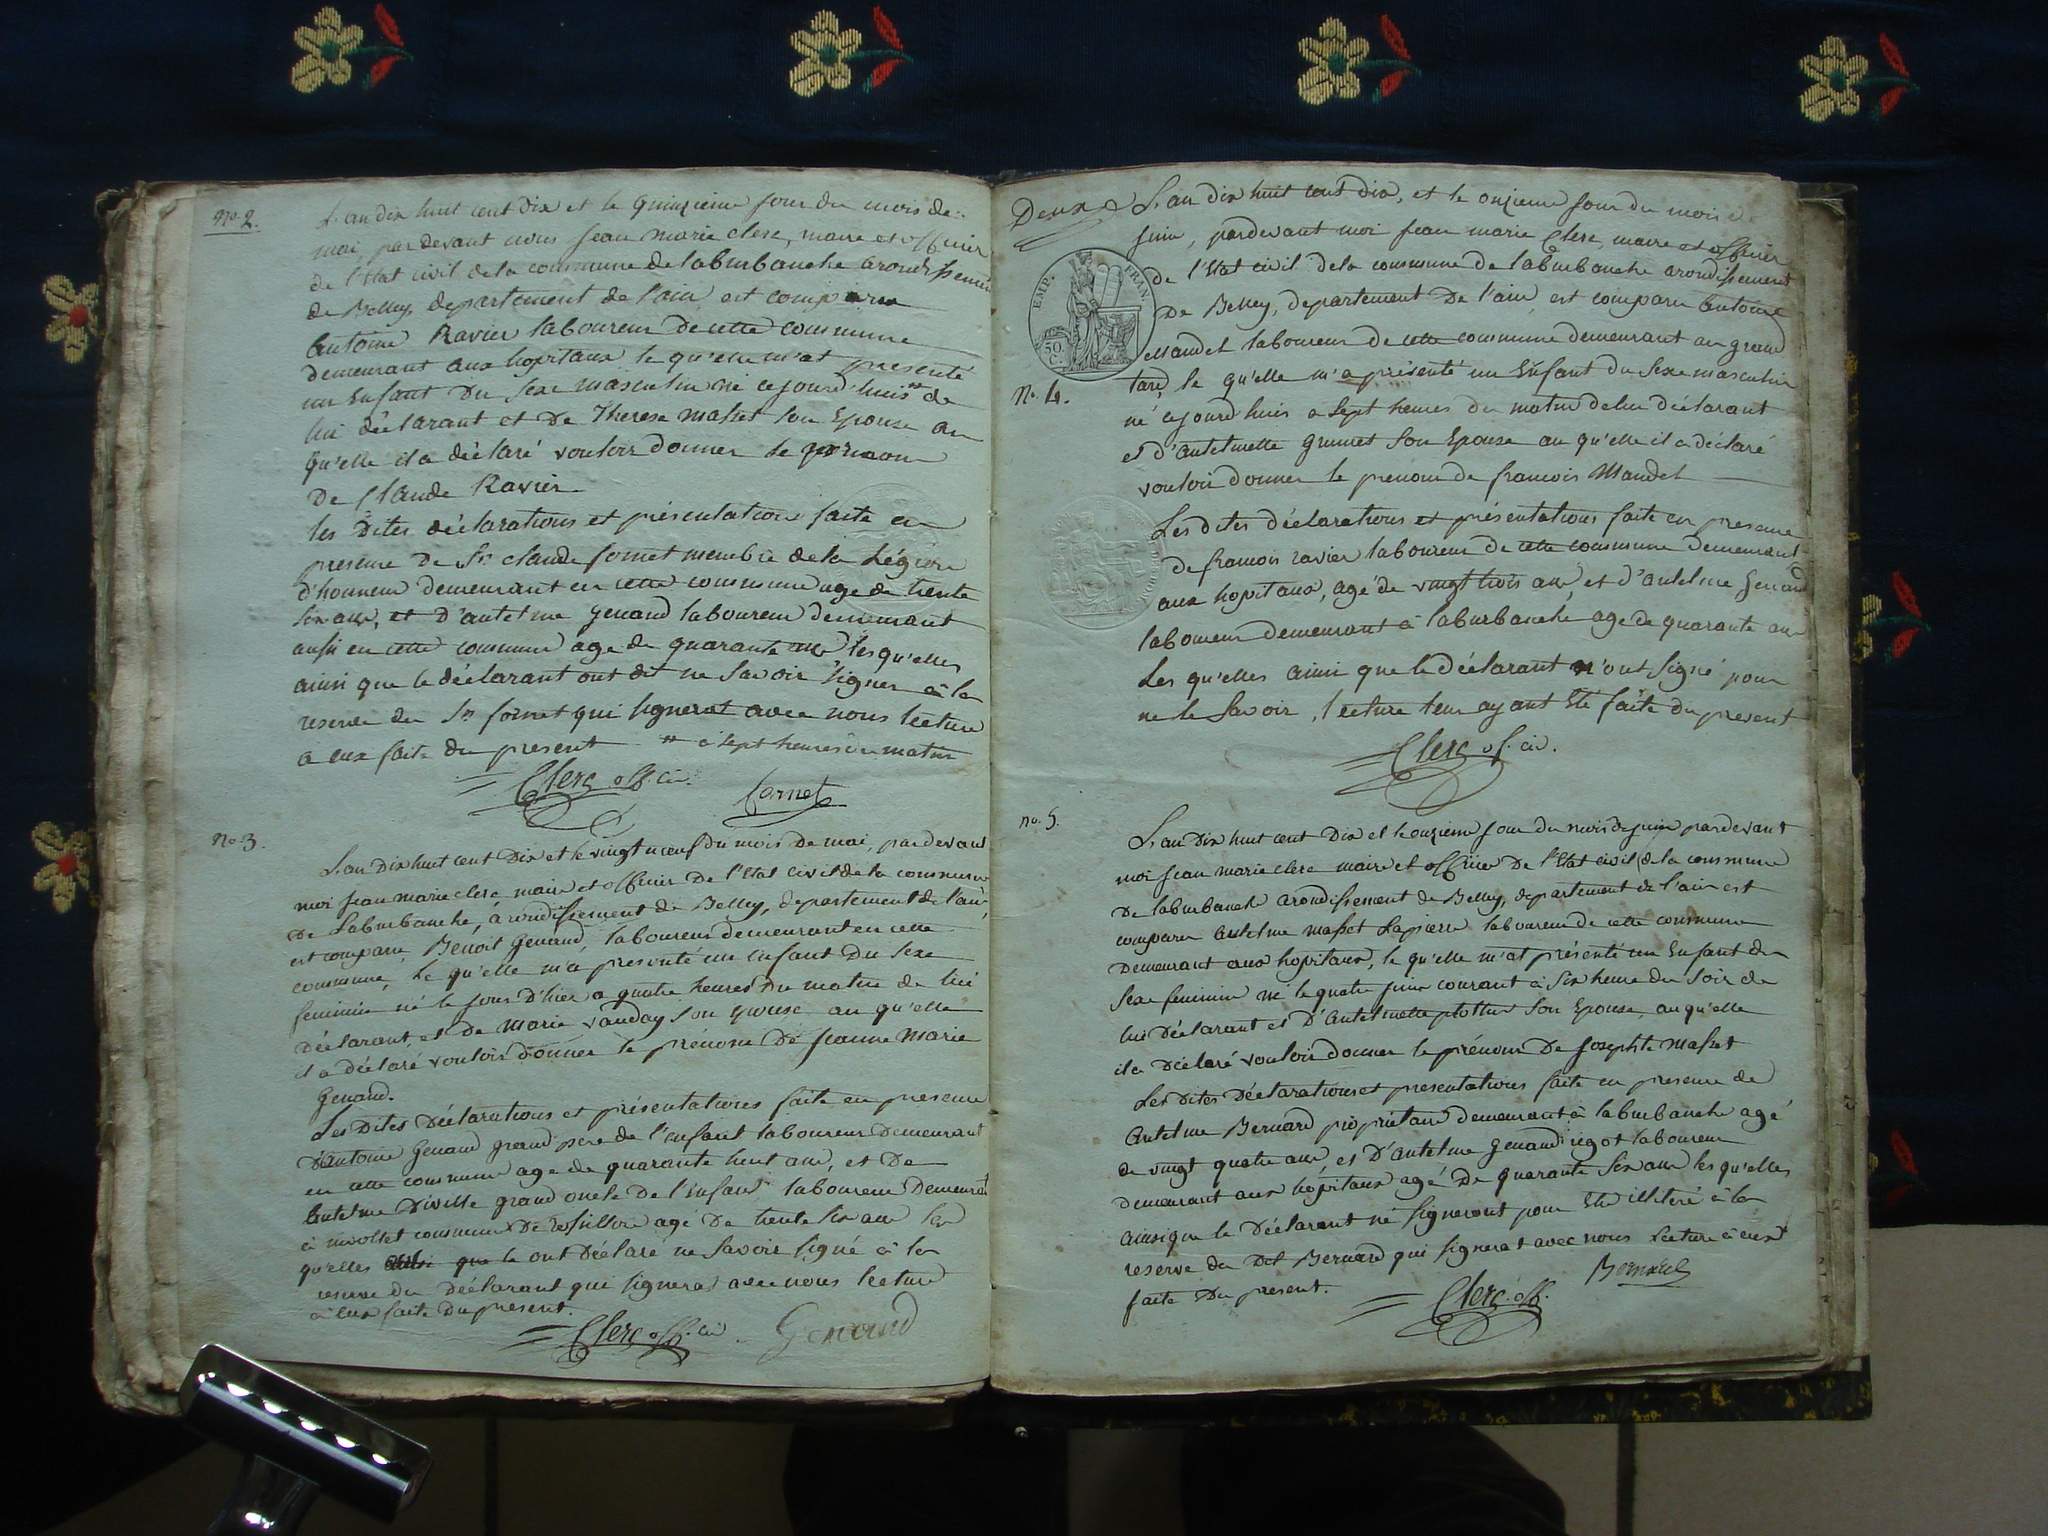 no. 2.
L'an dix huit cent dix et le quinzieme jour du mois de
mai, par devant nous jean marie clerc, maire et officier
de l'Etat civil de la commune de laburbanche arondissement
de Belley, departement de l'ain, est comparu
antoine Ravier laboureur de cette commune
demeurant aux hopitaux le qu'elle m'at presenté
un Enfant du sexe masculin né cejourd'huis # de
lui déclarant et de Therese masset son Epouse au
qu'elle il a déclaré vouloir donner le prenom
de Claude Ravier
les dites déclarations et présentations faite en
presence de Sr. claude fornet membre de la Légion
d'honneur demeurant en cette commune age de trente
six ans, et d'antelme genand laboureur demeurant
aussi en cette commune age de quarante ans lesqu'elles
ainsi que le déclarant ont dit ne savoir signer à la
reserve du Sr. fornet qui signerat avec nous lecture
a eux faite du present # à sept heures du matin
Clerc off. civ. fornet
no. 3.
L'an dix huit cent dix et le vingt neuf du mois de mai, par devant
moi jean marie clerc maire et officier de l'Etat civil de la commune
de Laburbanche, arondissement de Belley, departement de l'ain,
est comparu Benoit Genand, laboureur demeurant en cette
commune, le qu'elle m'a presenté un Enfant du sexe
feminin né le jour d'hier a quatre heures du matin de lui
déclarant, et de marie vauday son Epouse, au qu'elle
il a déclaré vouloir donner le prénom de jeanne marie
Genand.
Les dites déclarations et présentations faite en presence
d'antoine Genand grand pere de l'enfant laboureur demeurant
en cette commune age de quarante huit ans, et de
antelme diville grand oncle de l'enfant laboureur demeurant
à commune de rossillon agé de trente six ans les
qu'elles que le ont déclaré ne savoir signé à la
reserve du déclarant qui signerat avec nous lecture
à eux faite du present.
Clerc off. civ. Genand
Deux
L'an dix huit cent dix, et le onzieme jour du mois de
juin, pardevant moi jean marie Clerc, maire et officier
de l'Etat civil de la commune de laburbanche arondissement
de Belley, departement de l'ain, est comparu antoine
Mandet laboureur de cette commune demeurant au grand
EMP. FRAN.
50 C.
No. 4.
tare, le qu'elle m'a présenté un Enfant du sexe masculin
né cejourd'huis a sept heures du matin de lui déclarant
et d'antelmette grumet son Epouse au qu'elle il a déclaré
vouloir donner le prenom de francois Mandet
Les dites déclarations et présentations faite en presence
de francois ravier laboureur de cette commune demeurant
aux hopitaux, agé de vingt trois ans, et d'antelme genand
laboureur demeurant à laburbanche age de quarante ans
Les qu'elles ainsi que le déclarant n'ont signé pour
ne le savoir, lecture leur ayant Eté faite du present
Clerc of. civ.
no. 5.
L'an dix huit cent dix et le onzieme jour du mois de juin pardevant
moi jean marie clerc maire et officier de l'Etat civil de la commune
de laburbanch arondissement de Belley, departement de l'ain est
comparu antelme masset Lapierre laboureur de cette commune
demeurant aux hopitaux, le qu'elle m'at présenté un Enfant du
sexe feminin né le quatre juin courant à six heure du soir de
lui déclarant et d'antelmette son Epouse, au qu'elle
il a déclaré vouloir donner le prénom de josephte masset
Les dites déclarations et presentations faite en presence de
antelme Bernard propriétaire demeurant à laburbanche agé
de vingt quatre ans et d'antelme genand rigot laboureur
demeurant aux hopitaux agé de quarante six ans lesqu'elles
ainsi que le déclarant ne signeront pour Etre illiteré à la
reserve du dit Bernard qui signerat avec nous lecture à eux
faite du present.
Clerc. off. Bernard